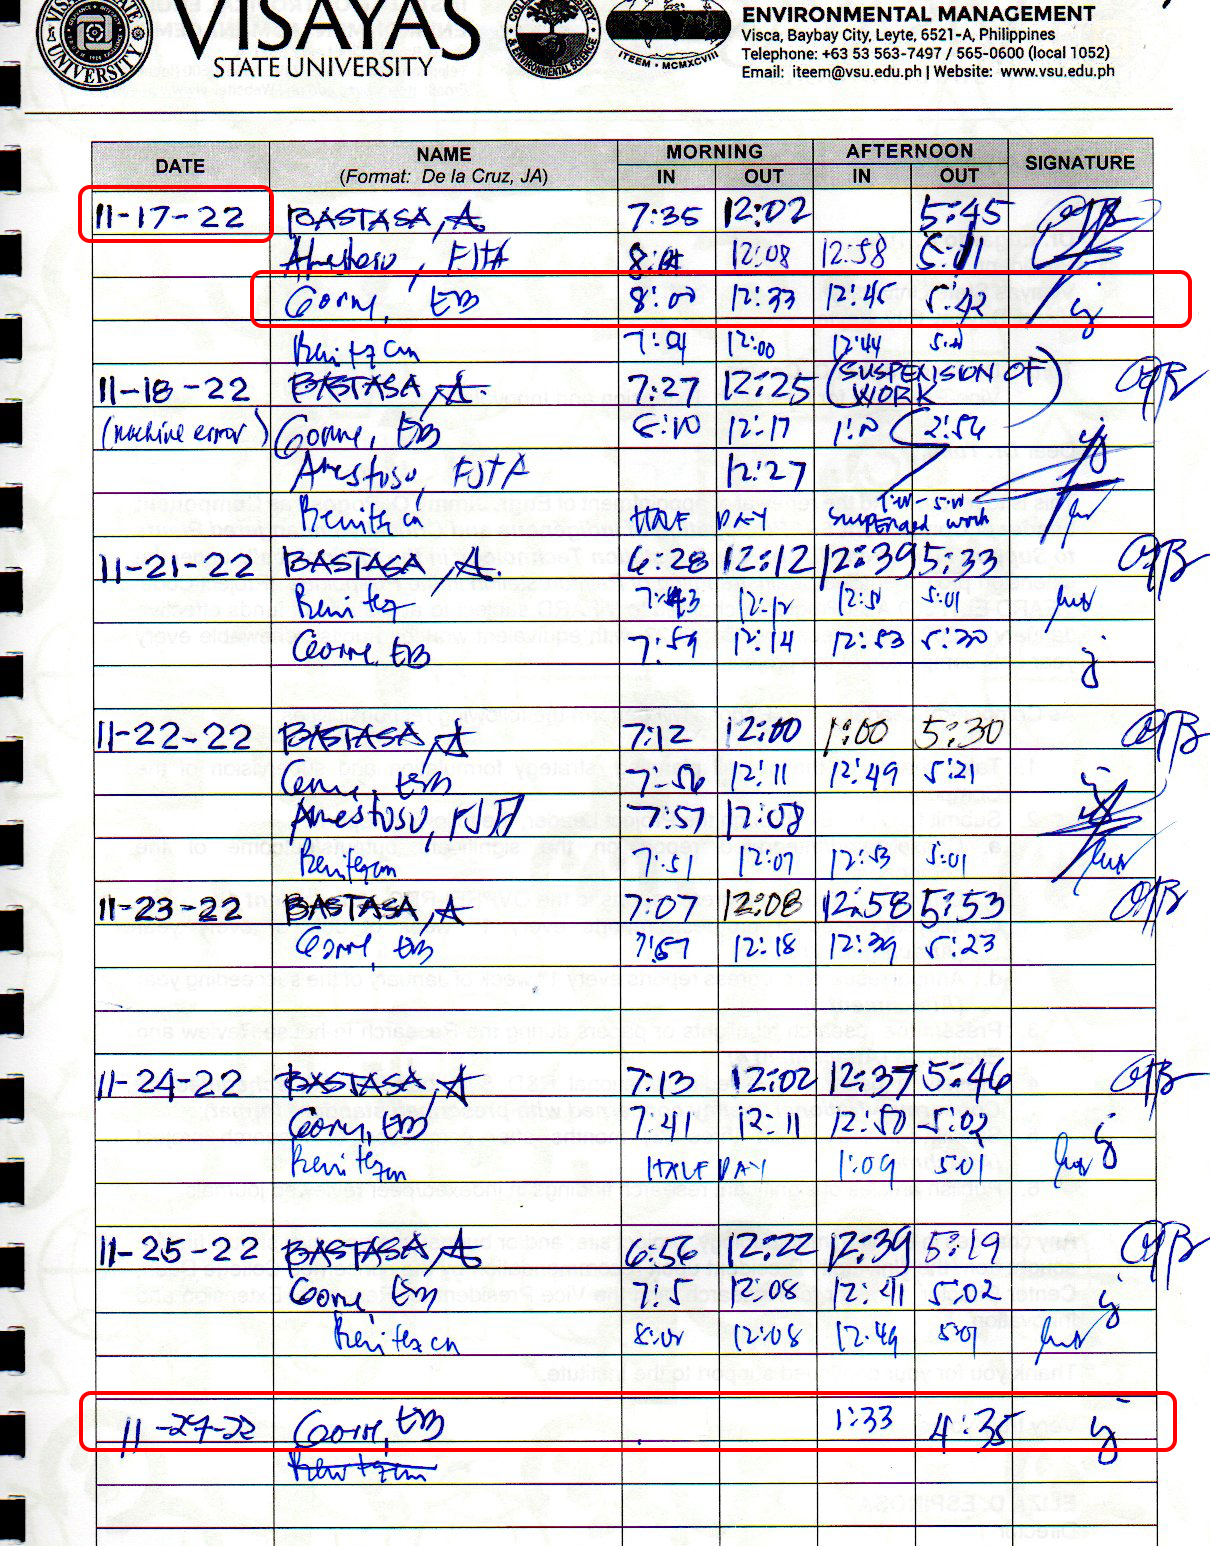 VISAYAS
STATE UNIVERSITY
ENVIRONMENTAL MANAGEMENT
Visca, Baybay City, Leyte, 6521-A, Philippines
Telephone: +63 53 563-7497 / 565-0600 (local 1052)
Email: iteem@vsu.edu.ph | Website: www.vsu.edu.ph
UNIVERSITY
& ENVIRONMENTAL SCIENCE
ITEEM • MCMXCVIII
DATE NAME MORNING AFTERNOON SIGNATURE
(Format: De la Cruz, JA) IN OUT IN OUT
11-17-22 BASTASA, A. 7:35 12:02 5:45
Anestoso, FJTA 12:08 12:58
Gorne, EB 8:00 12:33 12:45 5:42
Benitez CN 12:00 12:44
11-18-22 BASTASA, A. 7:27 12:25 (SUSPENSION OF WORK)
(machine error) Gorne, EB 12:17 2:54
Anestoso, FJTA 12:27
Benitez CN HALF DAY 1:00-5:00 suspended work
11-21-22 BASTASA, A. 6:28 12:12 12:39 5:33
Benitez 7:43 12:12 5:01
Gorne, EB 7:59 12:14 12:53 5:30
11-22-22 BASTASA, A 7:12 12:00 1:00 5:30
Gorne, EB 7:56 12:11 12:49 5:21
Anestoso, FJTA 7:57 12:08
Benitez CN 7:51 12:07 12:53 5:01
11-23-22 BASTASA, A 7:07 12:08 12:58 5:53
Gorne, EB 7:57 12:18 12:39 5:23
11-24-22 BASTASA, A 7:13 12:02 12:37 5:46
Gorne, EB 7:41 12:11 12:50 5:02
Benitez CN HALF DAY 1:09 5:01
11-25-22 BASTASA, A 6:56 12:22 12:39 5:19
Gorne, EB 12:08 12:41 5:02
Benitez CN 8:01 12:08 12:49 5:01
Gorne, EB 1:33 4:35